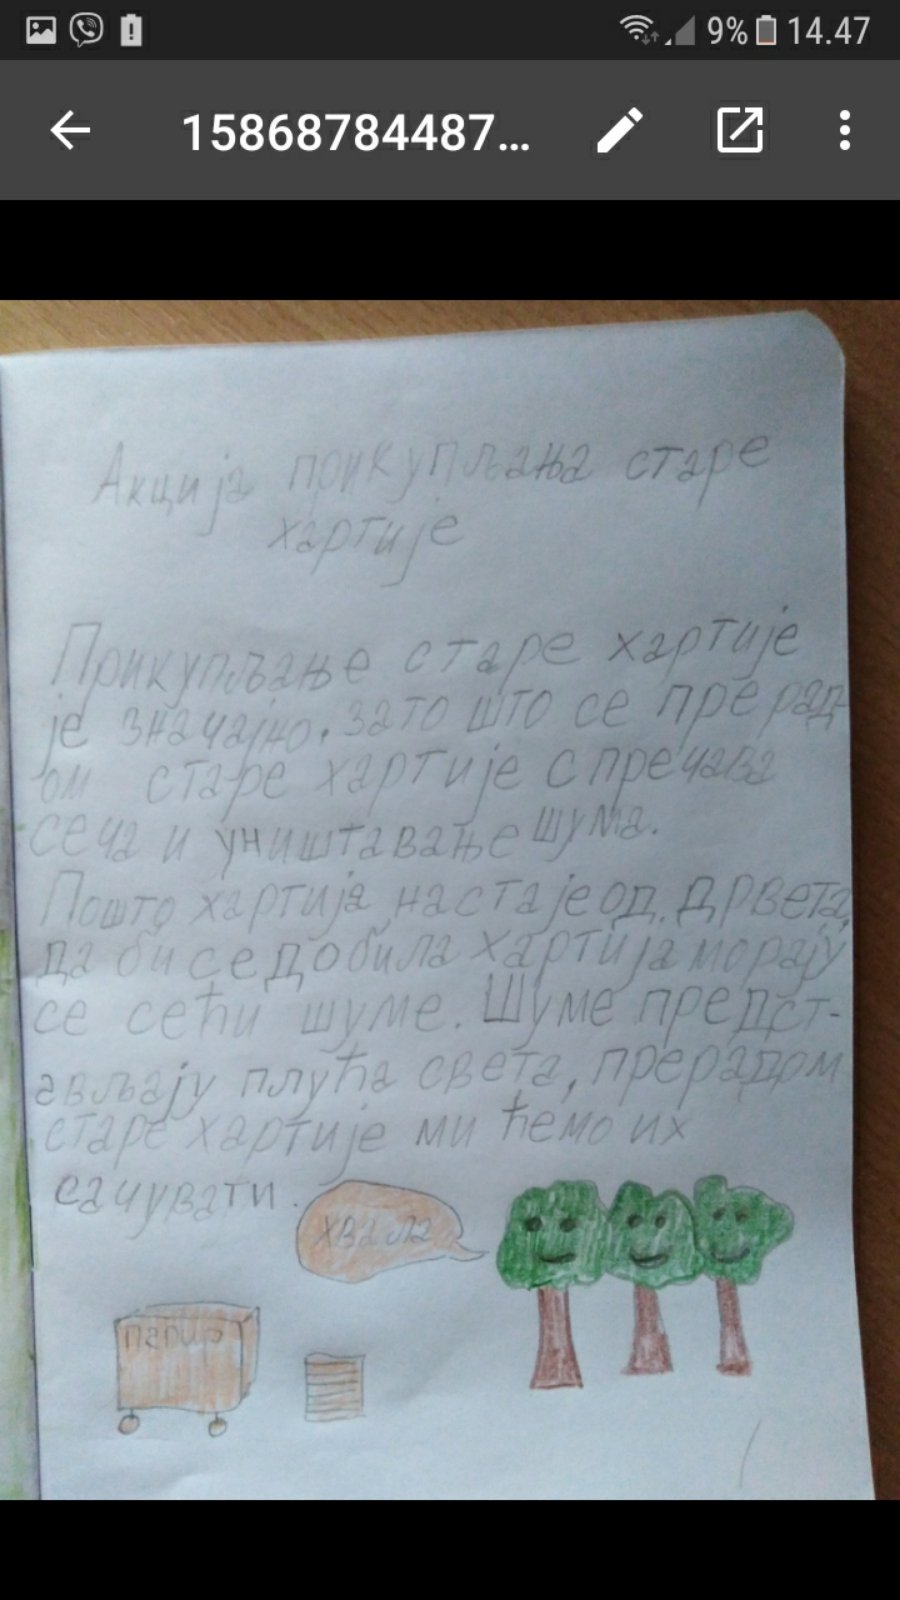 9% 14.47
15868784487...
Акција прикупљања старе
хартије
Прикупљање старе хартије
је значајно, зато што се прерад-
ом старе хартије спречава
сеча и уништавање шума.
Пошто хартија настаје од дрвета,
да би се добила хартија морају
се сећи шуме. Шуме предст-
ављају плућа света, прерадом
старе хартије ми ћемо их
сачувати.
хвала
папир